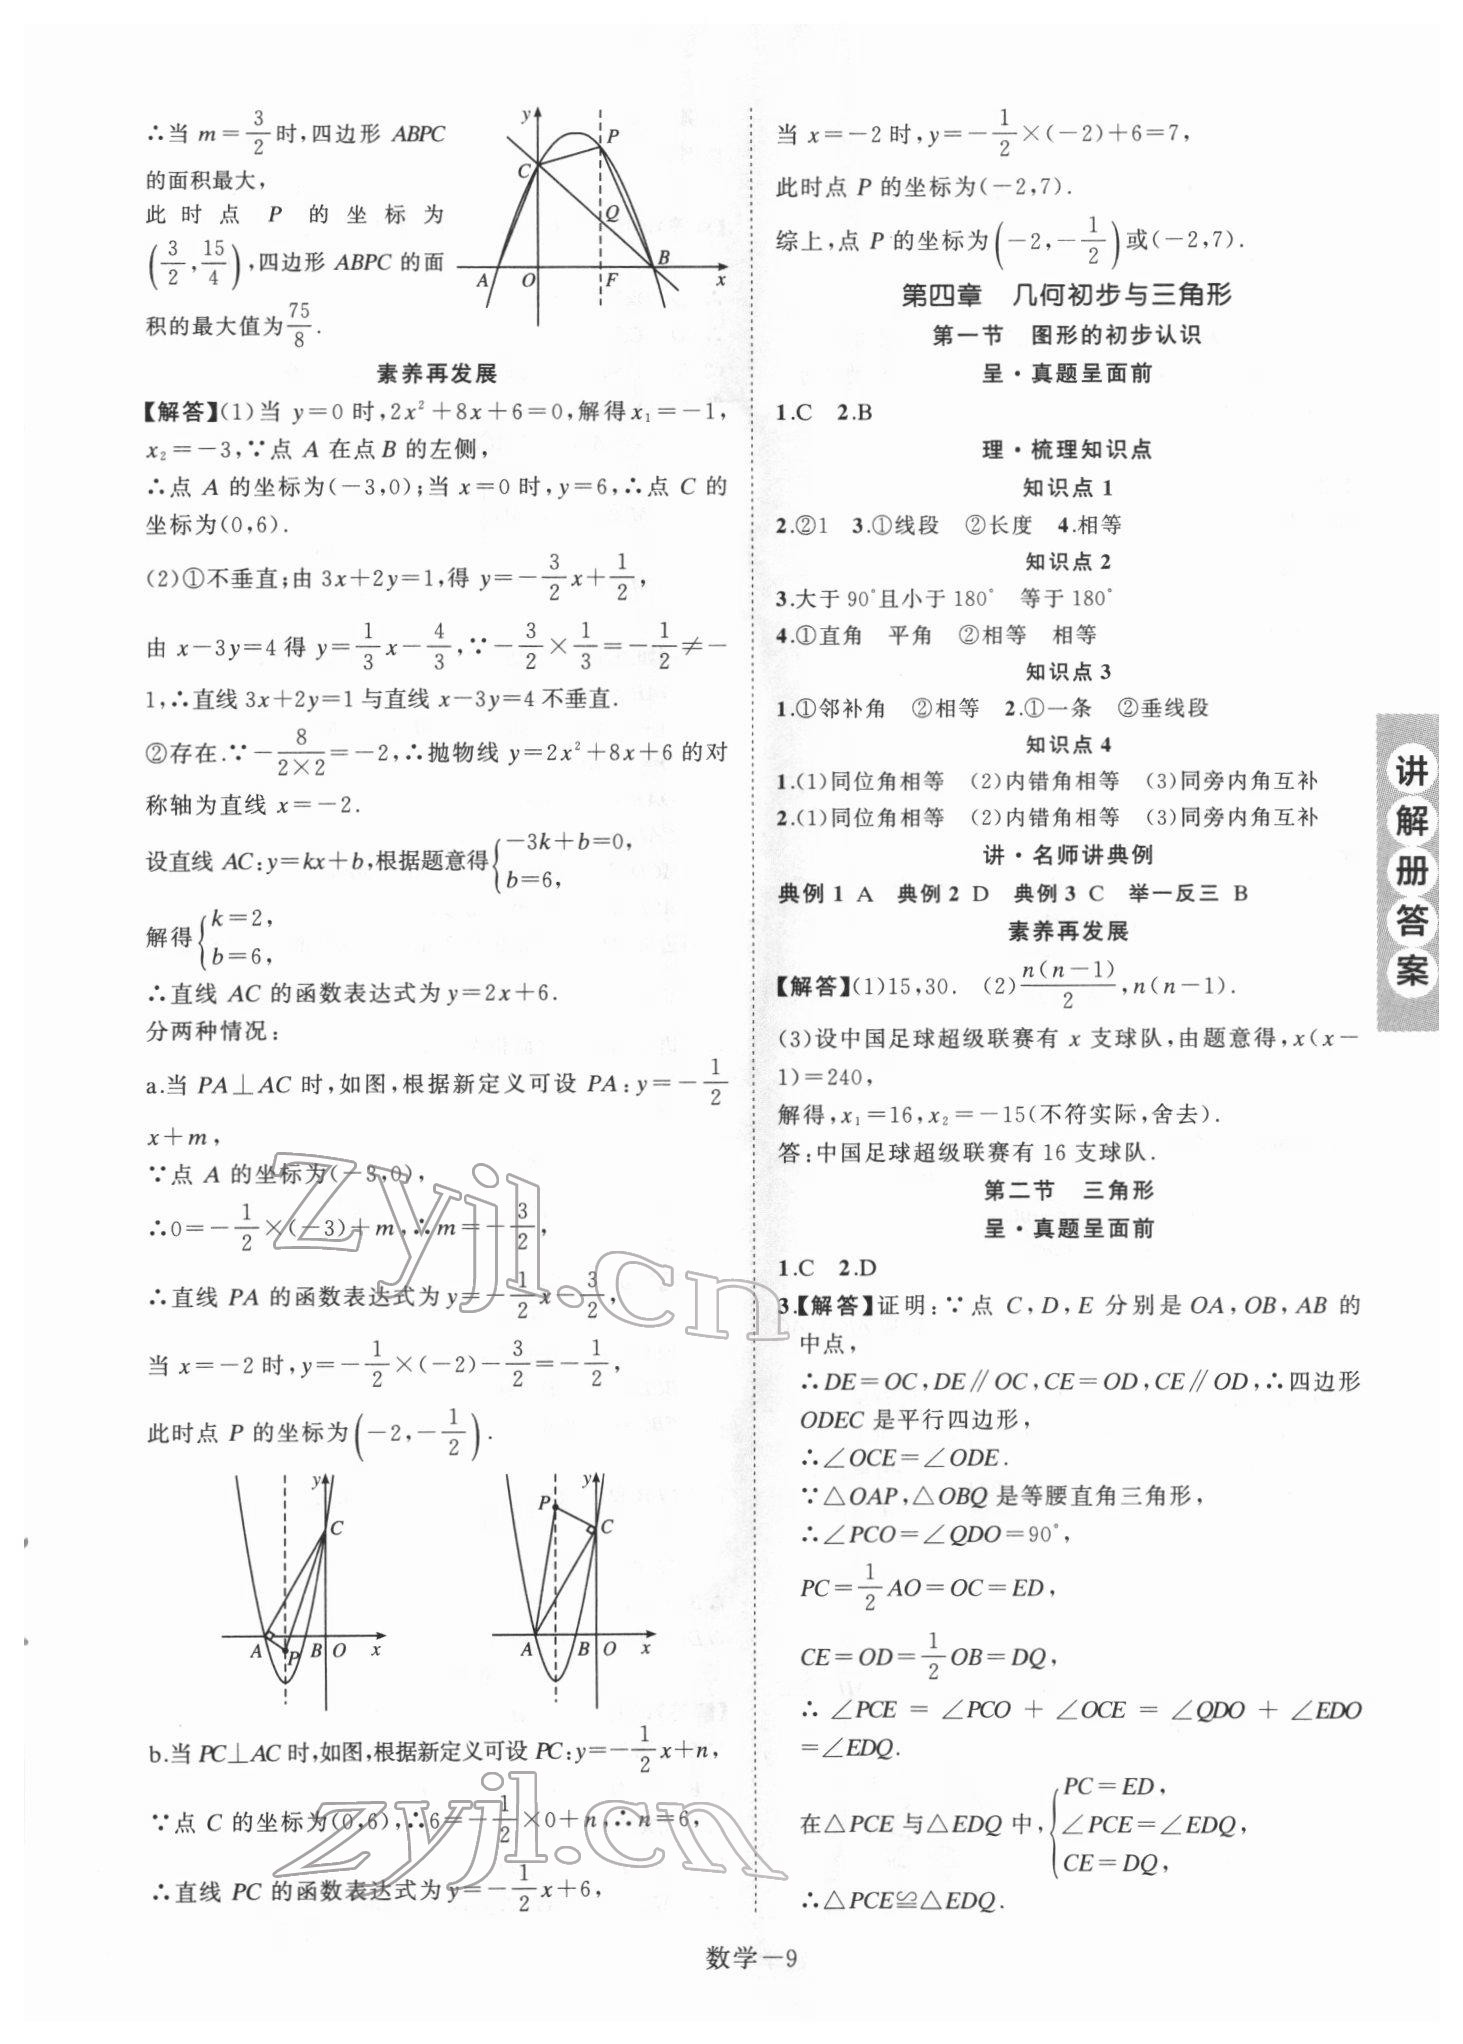 ∴当 m=3/2时,四边形 ABPC
的面积最大,
此时点 P 的坐标为
(3/2,15/4),四边形 ABPC 的面
积的最大值为75/8.
y
P
C
Q
B
A
O
F
x
素养再发展
【解答】(1)当 y=0 时,2x²+8x+6=0,解得x₁=-1,
x₂=-3,∵点 A 在点B 的左侧,
∴点 A 的坐标为(-3,0);当 x=0 时,y=6,∴点 C 的
坐标为(0,6).
(2)①不垂直;由 3x+2y=1,得 y=-3/2x+1/2,
由 x-3y=4 得 y=1/3x-4/3,∵-3/2×1/3=-1/2≠-
1,∴直线 3x+2y=1 与直线 x-3y=4 不垂直.
②存在.∵-8/(2×2)=-2,∴抛物线 y=2x²+8x+6 的对
称轴为直线 x=-2.
设直线 AC:y=kx+b,根据题意得{-3k+b=0,
b=6,
解得{k=2,
b=6,
∴直线 AC 的函数表达式为 y=2x+6.
分两种情况:
a.当 PA⊥AC 时,如图,根据新定义可设 PA:y=-1/2
x+m,
∵点 A 的坐标为(-3,0),
∴0=-1/2×(-3)+m,∴m=-3/2,
∴直线 PA 的函数表达式为 y=-1/2x-3/2,
当 x=-2 时,y=-1/2×(-2)-3/2=-1/2,
此时点 P 的坐标为(-2,-1/2).
y
C
A
P
B
O
x
y
P
C
A
B
O
x
b.当 PC⊥AC 时,如图,根据新定义可设 PC:y=-1/2x+n,
∵点 C 的坐标为(0,6),∴6=-1/2×0+n,∴n=6,
∴直线 PC 的函数表达式为 y=-1/2x+6,
当 x=-2 时,y=-1/2×(-2)+6=7,
此时点 P 的坐标为(-2,7).
综上,点 P 的坐标为(-2,-1/2)或(-2,7).
第四章 几何初步与三角形
第一节 图形的初步认识
呈·真题呈面前
1.C 2.B
理·梳理知识点
知识点1
2.②1 3.①线段 ②长度 4.相等
知识点2
3.大于 90°且小于 180° 等于 180°
4.①直角 平角 ②相等 相等
知识点3
1.①邻补角 ②相等 2.①一条 ②垂线段
知识点4
1.(1)同位角相等 (2)内错角相等 (3)同旁内角互补
2.(1)同位角相等 (2)内错角相等 (3)同旁内角互补
讲·名师讲典例
典例1 A 典例2 D 典例3 C 举一反三 B
素养再发展
【解答】(1)15,30. (2)n(n-1)/2,n(n-1).
(3)设中国足球超级联赛有 x 支球队,由题意得,x(x-
1)=240,
解得,x₁=16,x₂=-15(不符实际,舍去).
答:中国足球超级联赛有 16 支球队.
第二节 三角形
呈·真题呈面前
1.C 2.D
3.【解答】证明:∵点 C,D,E 分别是 OA,OB,AB 的
中点,
∴DE=OC,DE∥OC,CE=OD,CE∥OD,∴四边形
ODEC 是平行四边形,
∴∠OCE=∠ODE.
∵△OAP,△OBQ 是等腰直角三角形,
∴∠PCO=∠QDO=90°,
PC=1/2AO=OC=ED,
CE=OD=1/2OB=DQ,
∴∠PCE=∠PCO+∠OCE=∠QDO+∠EDO
=∠EDQ.
在△PCE 与△EDQ 中,{PC=ED,
∠PCE=∠EDQ,
CE=DQ,
∴△PCE≌△EDQ.
讲解册答案
数学—9
zyjl.cn
zyjl.cn